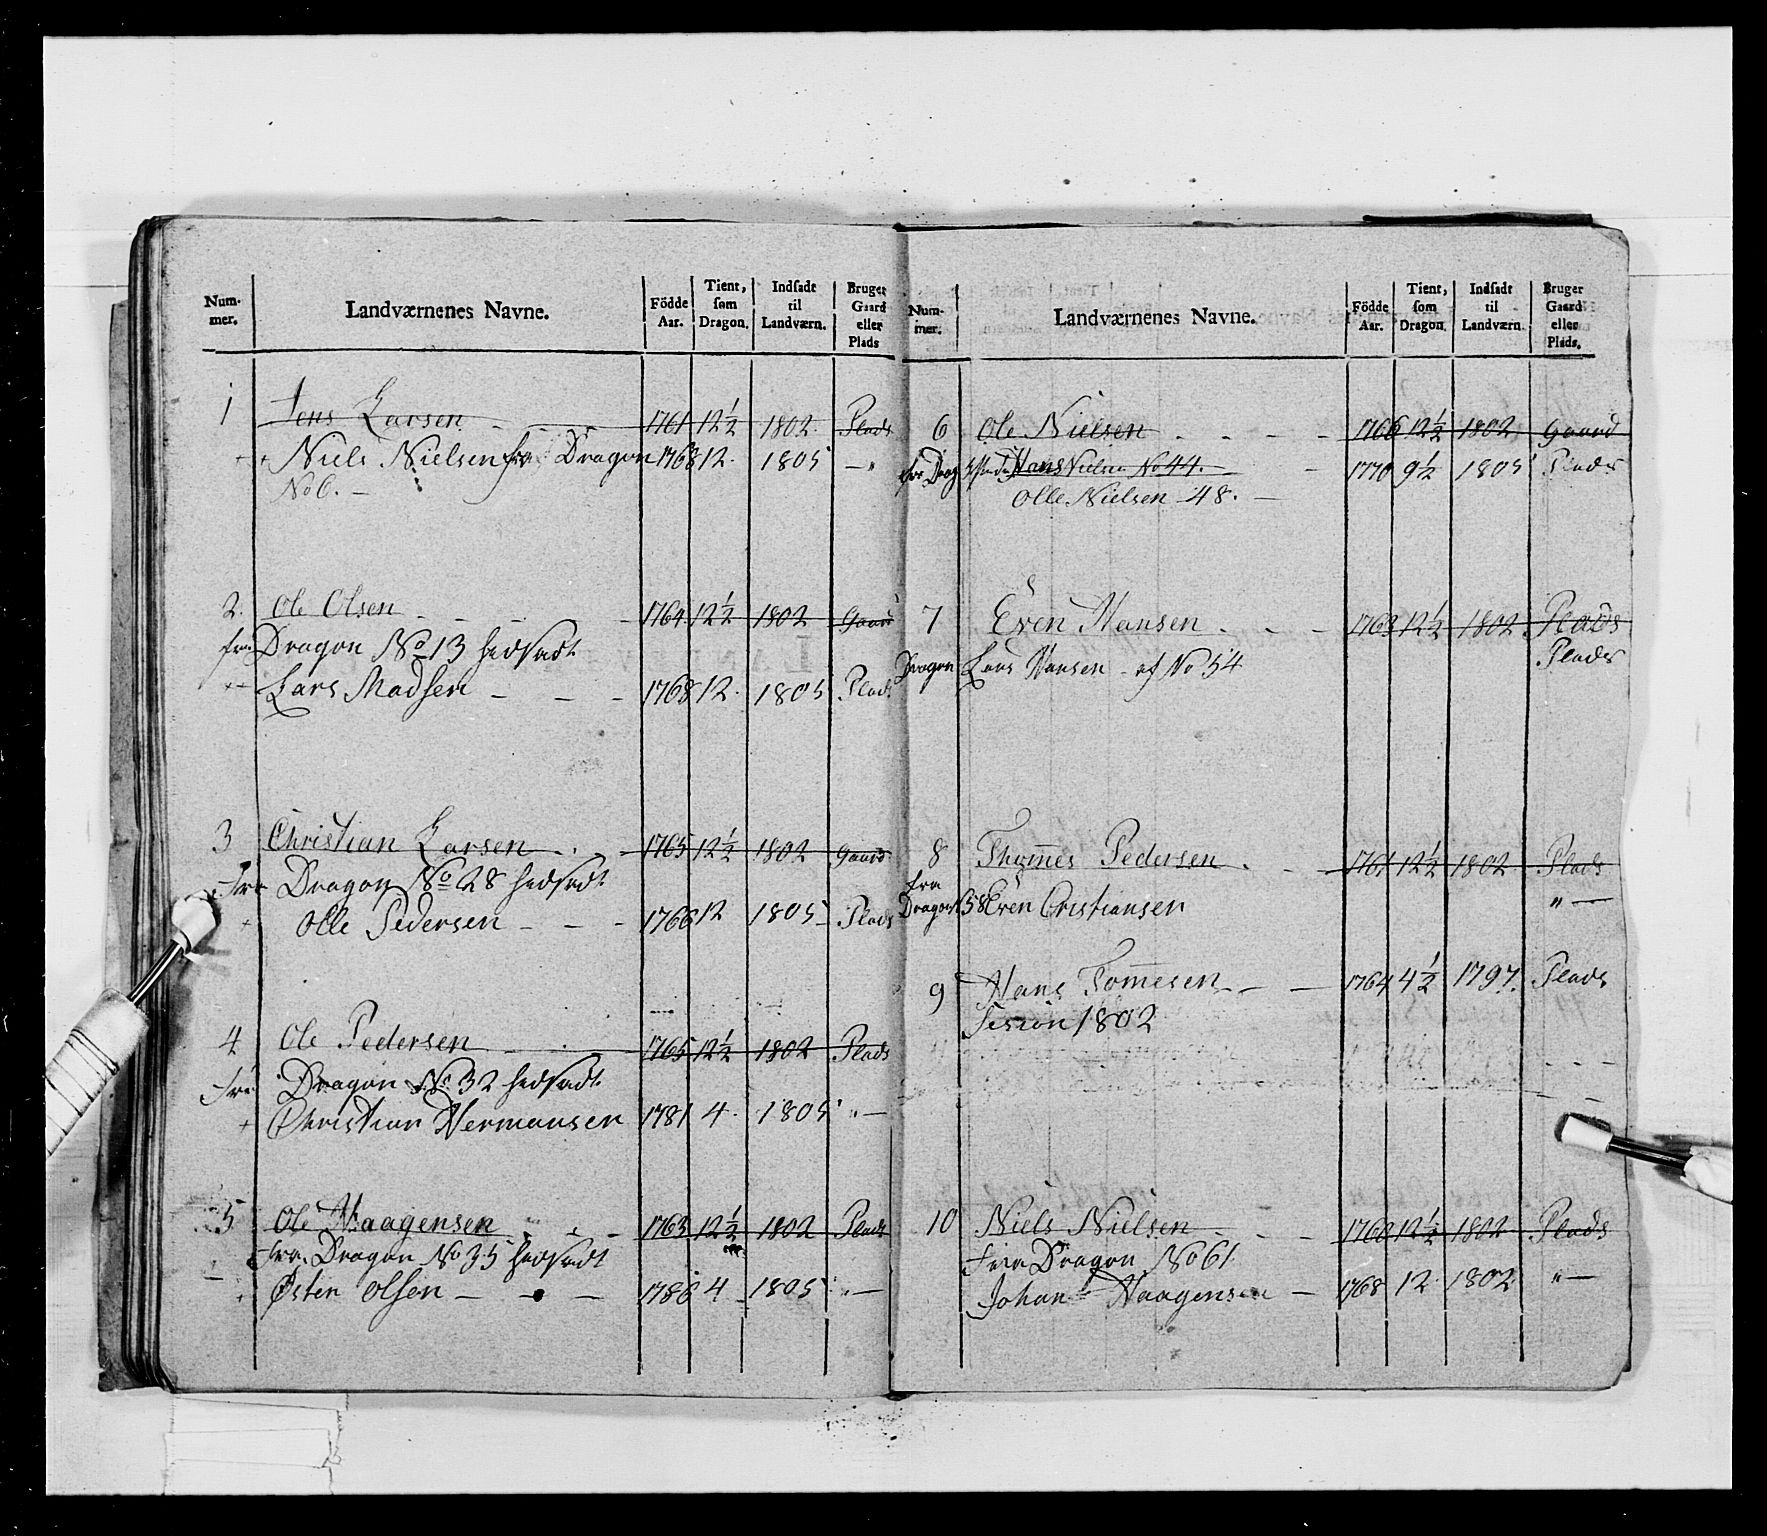 Num-
mer.
Landværnenes Navne.
Födde
Aar.
Tient,
ſom
Dragon.
Indſadt
til
Landværn.
Bruger
Gaard
eller
Plads
1 Jens Larsen 1761 12½ 1802 Plads
Niels Nielsen fra Dragon 1768 12. 1805 — "
No 6. —
2. Ole Olsen 1764 12½ 1802 Gaard
fra Dragon No 13 hedsadt
Lars Madsen — — — 1768 12. 1805 Plads
3 Christian Larsen 1765 12½ 1802 Gaard
fra Dragon No 28 hedsadt
Olle Pedersen — — — 1766 12 1805 Plads
4 Ole Pedersen 1765 12½ 1802 Plads
fra Dragon No 32 hedsadt
Christian Hermansen 1781 4. 1805 " —
5 Ole Haagensen 1763 12½ 1802 Plads
fra Dragon No 35 hedsadt
Østen Olsen — — — 1786 4 1805 " —
Num-
mer.
Landværnenes Navne.
Födde
Aar.
Tient,
ſom
Dragon.
Indſadt
til
Landværn.
Bruger
Gaard
eller
Plads.
6 Ole Nielsen 1766 12½ 1802 Gaard
fra Drag Hans Nielsen No 44. 1770 9½ 1805 Plads
Olle Nielsen 48. —
7 Even Hansen 1763 12½ 1802 Plads
Dragon Lars Hansen af No 54 Plads
8 Thommes Pedersen 1761 12½ 1802 Plads
fra
Dragon 58 Even Cristiansen " —
9 Hans Tommesen 1764 4½ 1797. Plads
Sesion 1802
10 Niels Nielsen 1760 12½ 1802 Plads
fra Dragon No 61
Johan Haagensen — 1768 12 1802 " —